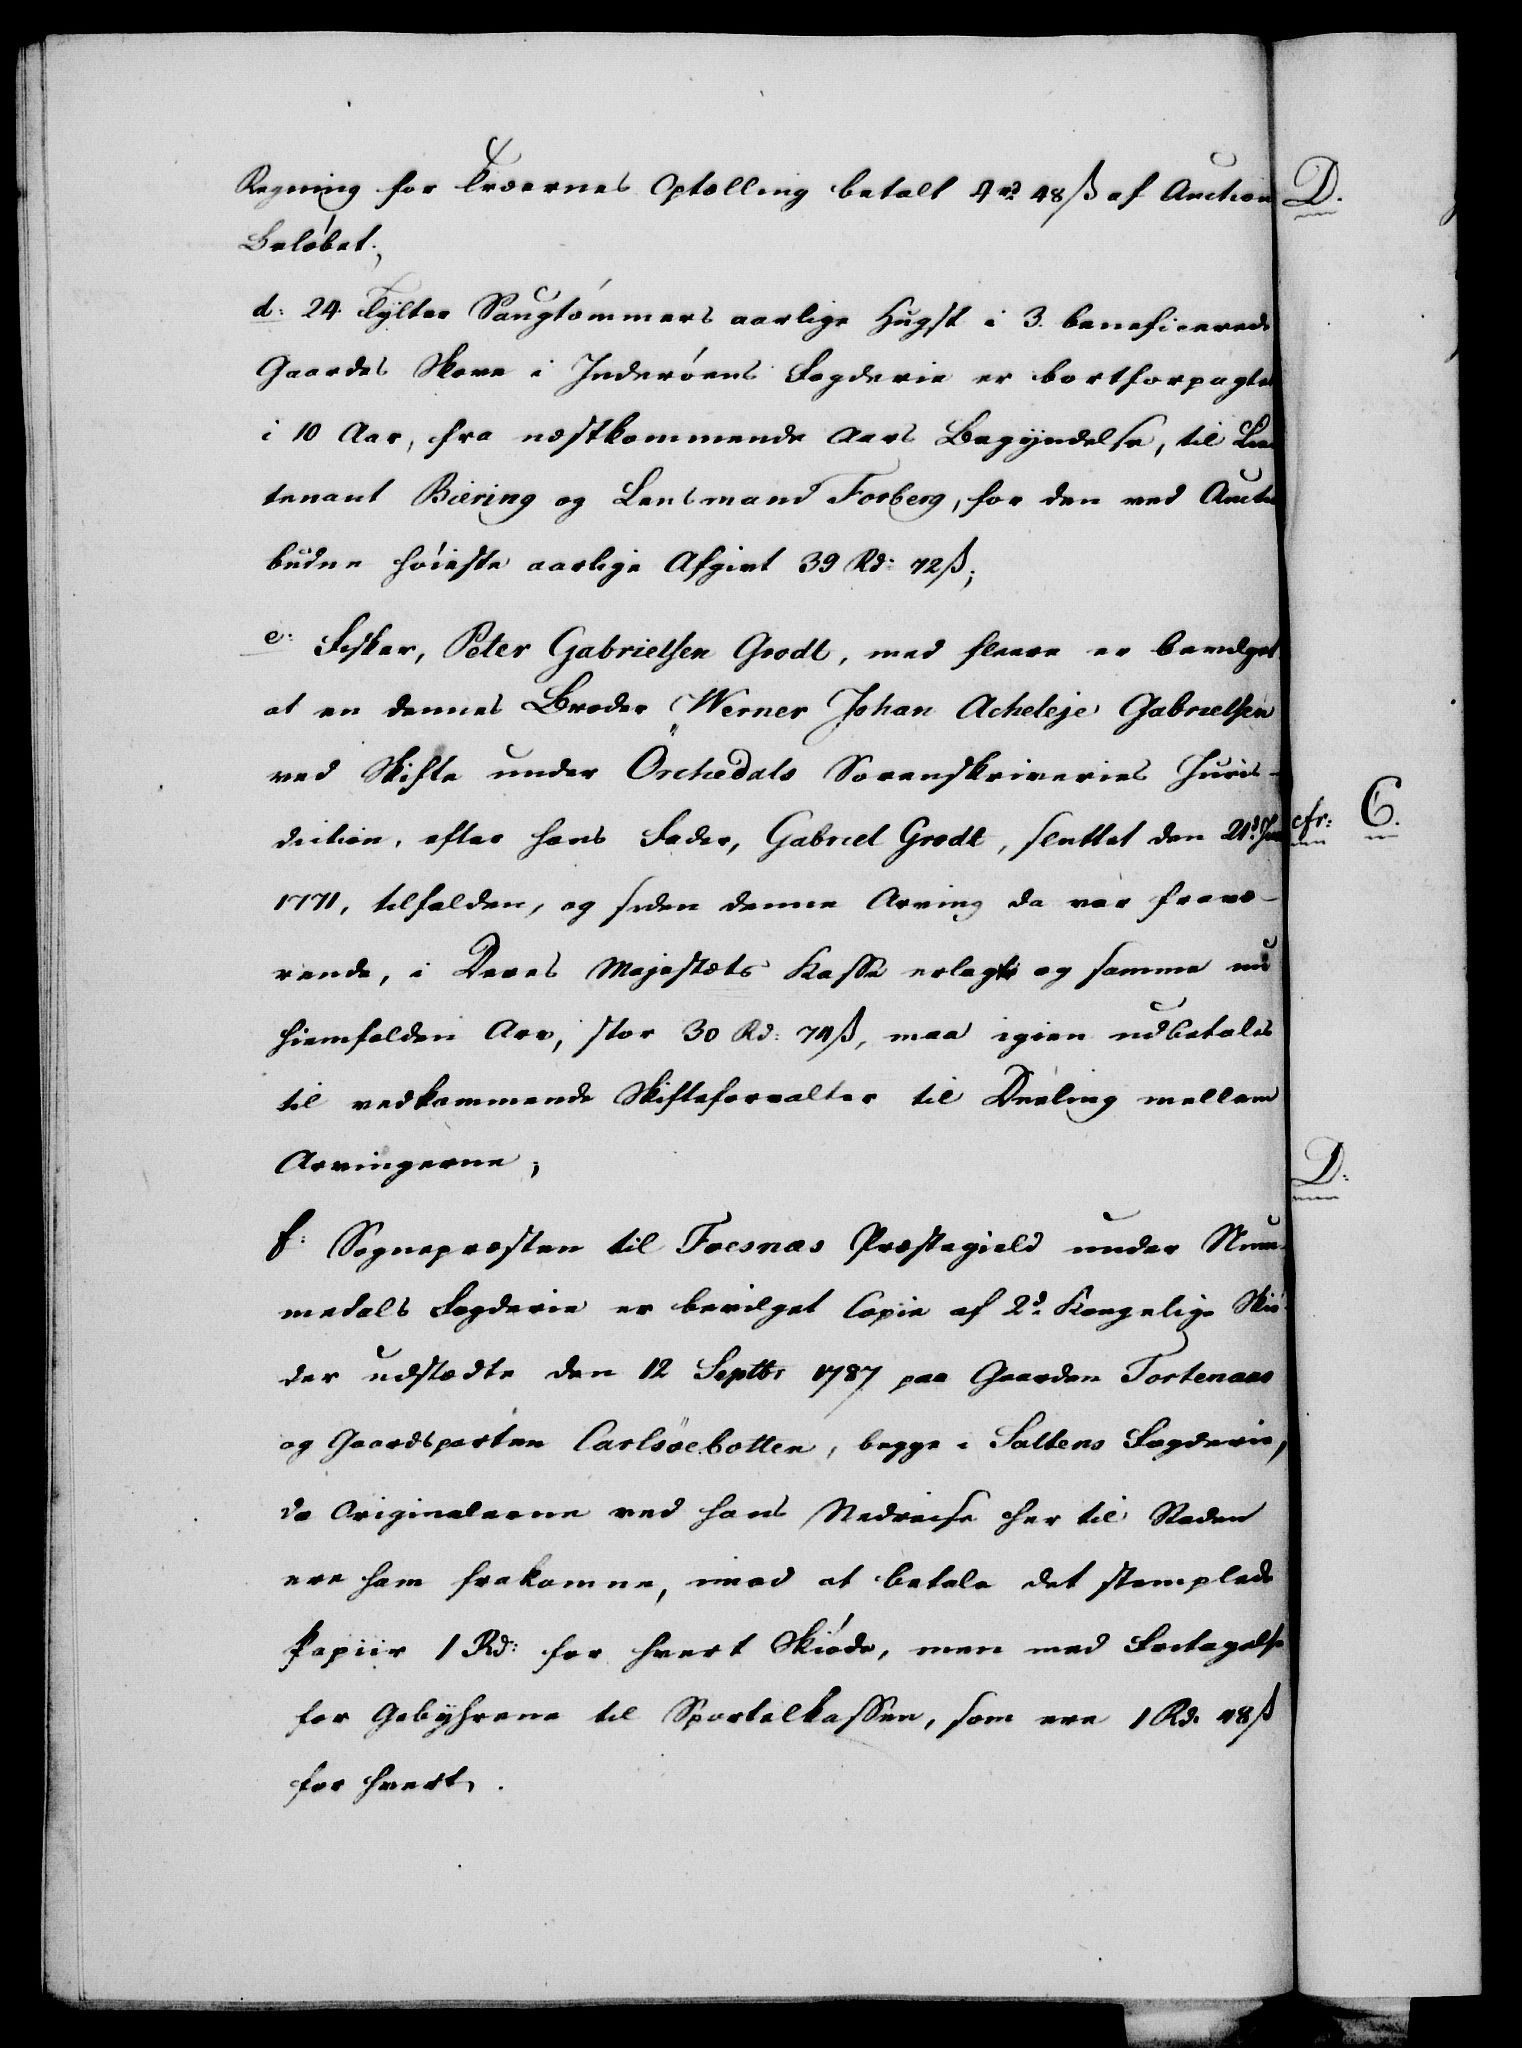 Regning for Træernes Optælling betalt 4 rd 48 ß af Auction
Beløbet;
d: 24 Tylter Saugtømmers aarlige Hugst i 3 beneficerede
Gaardes Skove i Inderøens Fogderie er bortforpagtet
i 10 Aar, fra næstkommende Aars Begyndelse, til Lieu
tenant Biering og Lensmand Forberg, for den ved Auction
budne høieste aarlige Afgivt 39 Rd: 72 ß;
e: Fisker, Peter Gabrielsen Grodt, med fleere er bevilget
at en dennes Broder Werner Johan Acheleje Gabrielsen
ved Skifte under Örchedals Sorenskriveries Juris-
diction, efter hans Fader, Gabriel Grodt, sluttet den 21d
1771, tilfalden, og siden denne Arving da var fravæ-
rende, i Deres Majestæts Kasse erlagte og samme nu
hiemfalden Arv, stor 30 Rd: 74 ß, maa igien udbetales
til vedkommende Skifteforvalter til Deeling mellem
Arvingerne;
f: Sognepræsten til Foesnæs Præstegield under Num-
medals Fogderie er bevilget Copie af 2de Kongelige Skiø
der udstædte den 12 Septbr 1787 paa Gaarden Tortenaas
og Gaardsparten Carlsöebotten, begge i Saltens Fogderie,
da Originalerne ved hans Nedreise her til Staden
ere ham frakomne, imod at betale det stemplede
Papiir 1 Rd: for hvert Skiøde, men med Fritagelse
for Gebyhrene til Sportelkassen, som ere 1 Rd. 48 ß
for hvert.
D.
cfr: C.
D: